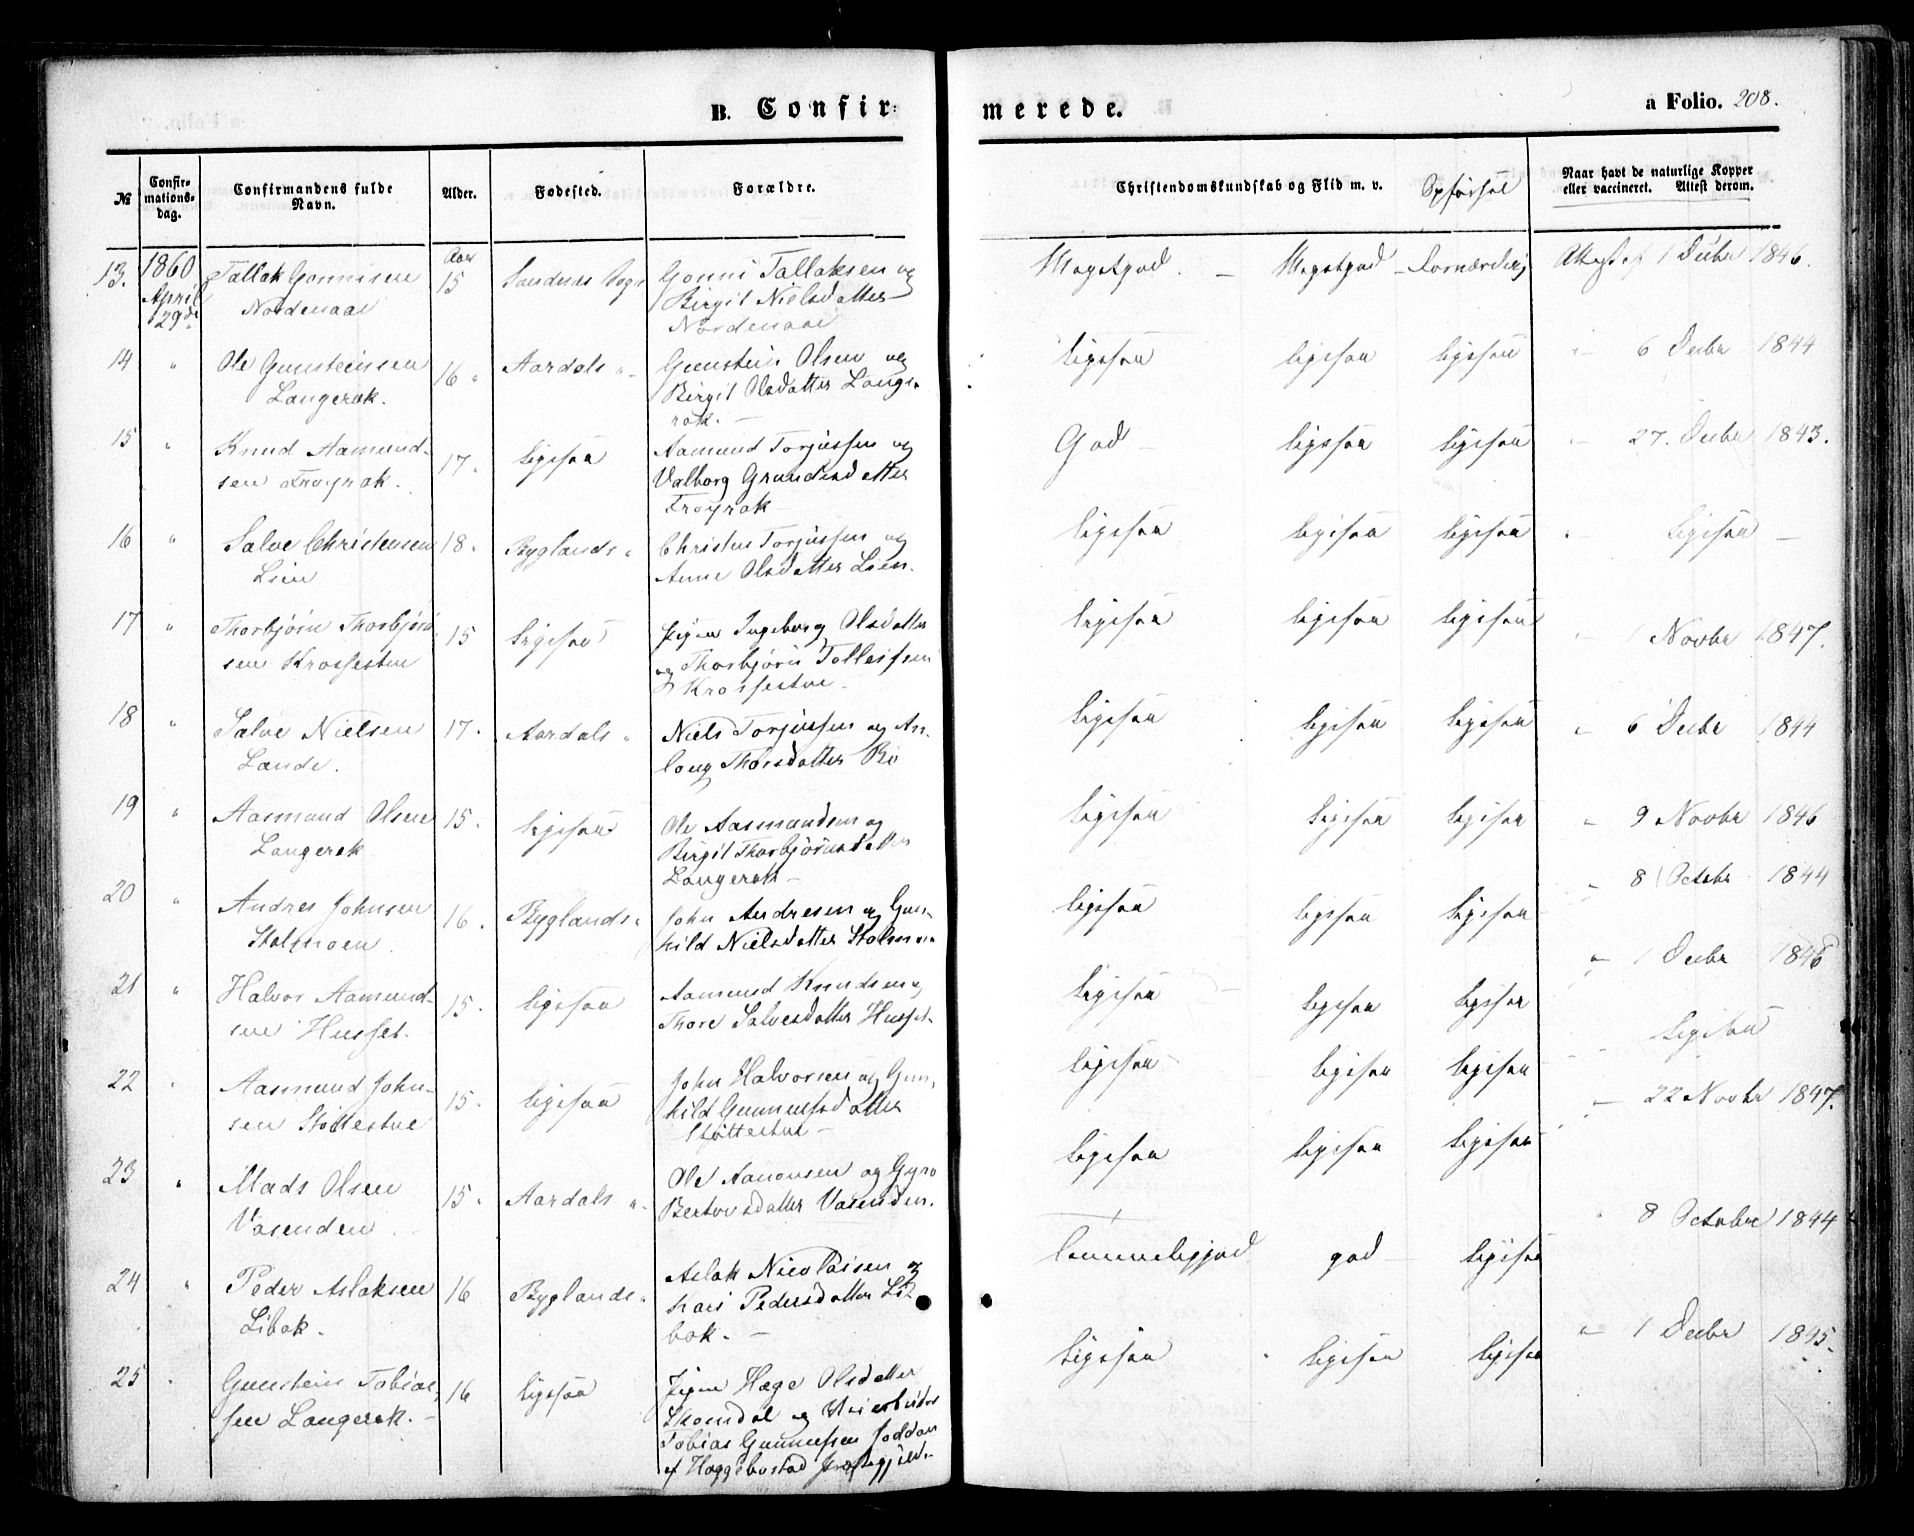 B. Confir-
merede.
a Folio. 208.
№
Confir-
mations-
dag.
Confirmandens fulde
Navn.
Alder.
Fødested.
Forældre.
Christendomskundskab og Flid m. v.
Opførsel
Naar havt de naturlige Kopper
eller vaccineret. Attest derom.
13. 1860 Tallak Gonnisen Aar 15 Sandnes Sogn Gonni Tallaksen og Megetgod — Megetgod — 1 Decbr 1846.
April Birgit Nielsdatter
29de Nordenaae Nordenaae
14 " Ole Gunsteinsen 16 " Aardals " Gunstein Olsen og ligesaa ligesaa ligesaa " 6 Decbr 1844
Langerak. Birgit Olsdatter Lange-
rak. —
15 " Knud Aamund- 17 " ligesaa Aamund Torjussen og God — ligesaa ligesaa " 27. Decbr 1843.
sen Frøyrak. Valborg Gundersdatter
Frøyrak —
16 " Salve Christensen 18 " Byglands " Christen Torjussen og ligesaa ligesaa ligesaa " ligesaa —
Lien Anne Olsdatter Lien.
17 " Thorbjørn Thorbjørn- 15 ligesaa Pigen Ingeborg Olsdatter ligesaa ligesaa ligesaa " 1 Novbr 1847.
sen Krosfestue og Thorbjørn Tollefsen
Krosfestue.
18 " Salve Nielsen 17. Aardals " Niels Torjussen og An- ligesaa ligesaa ligesaa " 6 Decbr 1844
Lande. laug Thorsdatter Bø
19 " Aasmund Olsen 15. ligesaa Ole Aasmundsen og ligesaa ligesaa ligesaa " 9 Novbr 1846
Langerak Birgit Thorbjørnsdatter
Langerak —
20 " Andres Johnsen 16. Byglands " John Andresen og Gun- ligesaa ligesaa ligesaa " 8 Octobr 1844
Stolmoen. hild Nielsdatter
21 " Halvor Aamund- 15. ligesaa Aamund Knudsen og ligesaa ligesaa ligesaa " 1 Decbr 1846
sen Husset. Thore Salvesdatter Husset.
22 " Aasmund John- 15. ligesaa John Halvorsen og Gun- ligesaa ligesaa ligesaa ligesaa
sen Støttestue hild Gunnufsdatter
Støttestue —
23 " Mads Olsen 15. Aardals " Ole Aanonsen og Gyro ligesaa ligesaa ligesaa " 22 Novbr 1847.
Vasenden. Vasenden.
24 " Peder Aslaksen 16 Byglands " Aslak Nicolaisen og Temmeliggod god ligesaa " 8 Octobr 1844
Libak. Kari Pedersdatter Li-
bak. —
25 " Gunstein Tobias- 16 ligesaa Pigen Hæge Olsdatter ligesaa ligesaa ligesaa " 1 Decbr 1845.
sen Langerak. — Skomdal og
Tobias Gunnufsen
af Heggebostad Præstegjeld. —